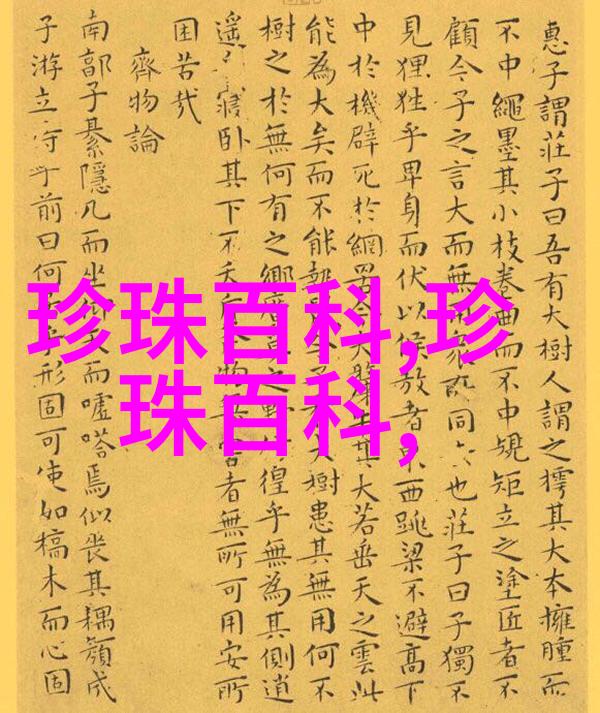 惠子謂莊子曰吾有大樹人謂之樗其大本擁腫而
不中繩墨其小枝卷曲而不中規矩立之塗匠者不
顧今子之言大而無所同也莊子曰子獨不
見狸狌乎卑身而伏以候敖者東西跳梁不避高下
中於機辟死於網罟今夫其大若垂天之雲此
能為大矣而不能今子大樹患其無用何不
樹之於無何有之鄉之野徨乎無為其側逍
遙寢臥其下不夭物無害者無所可用安所
困苦哉
齊物論
南郭子綦隱几而坐仰天而噓嗒焉似喪其耦顏成
子游立侍乎前曰何乎形固可使如槁木而心固
珍珠百科,珍
珠百科,